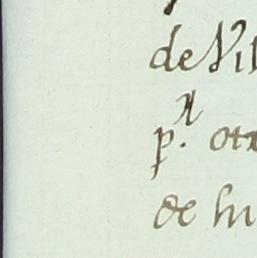 de Vil
p.r otr
de hi